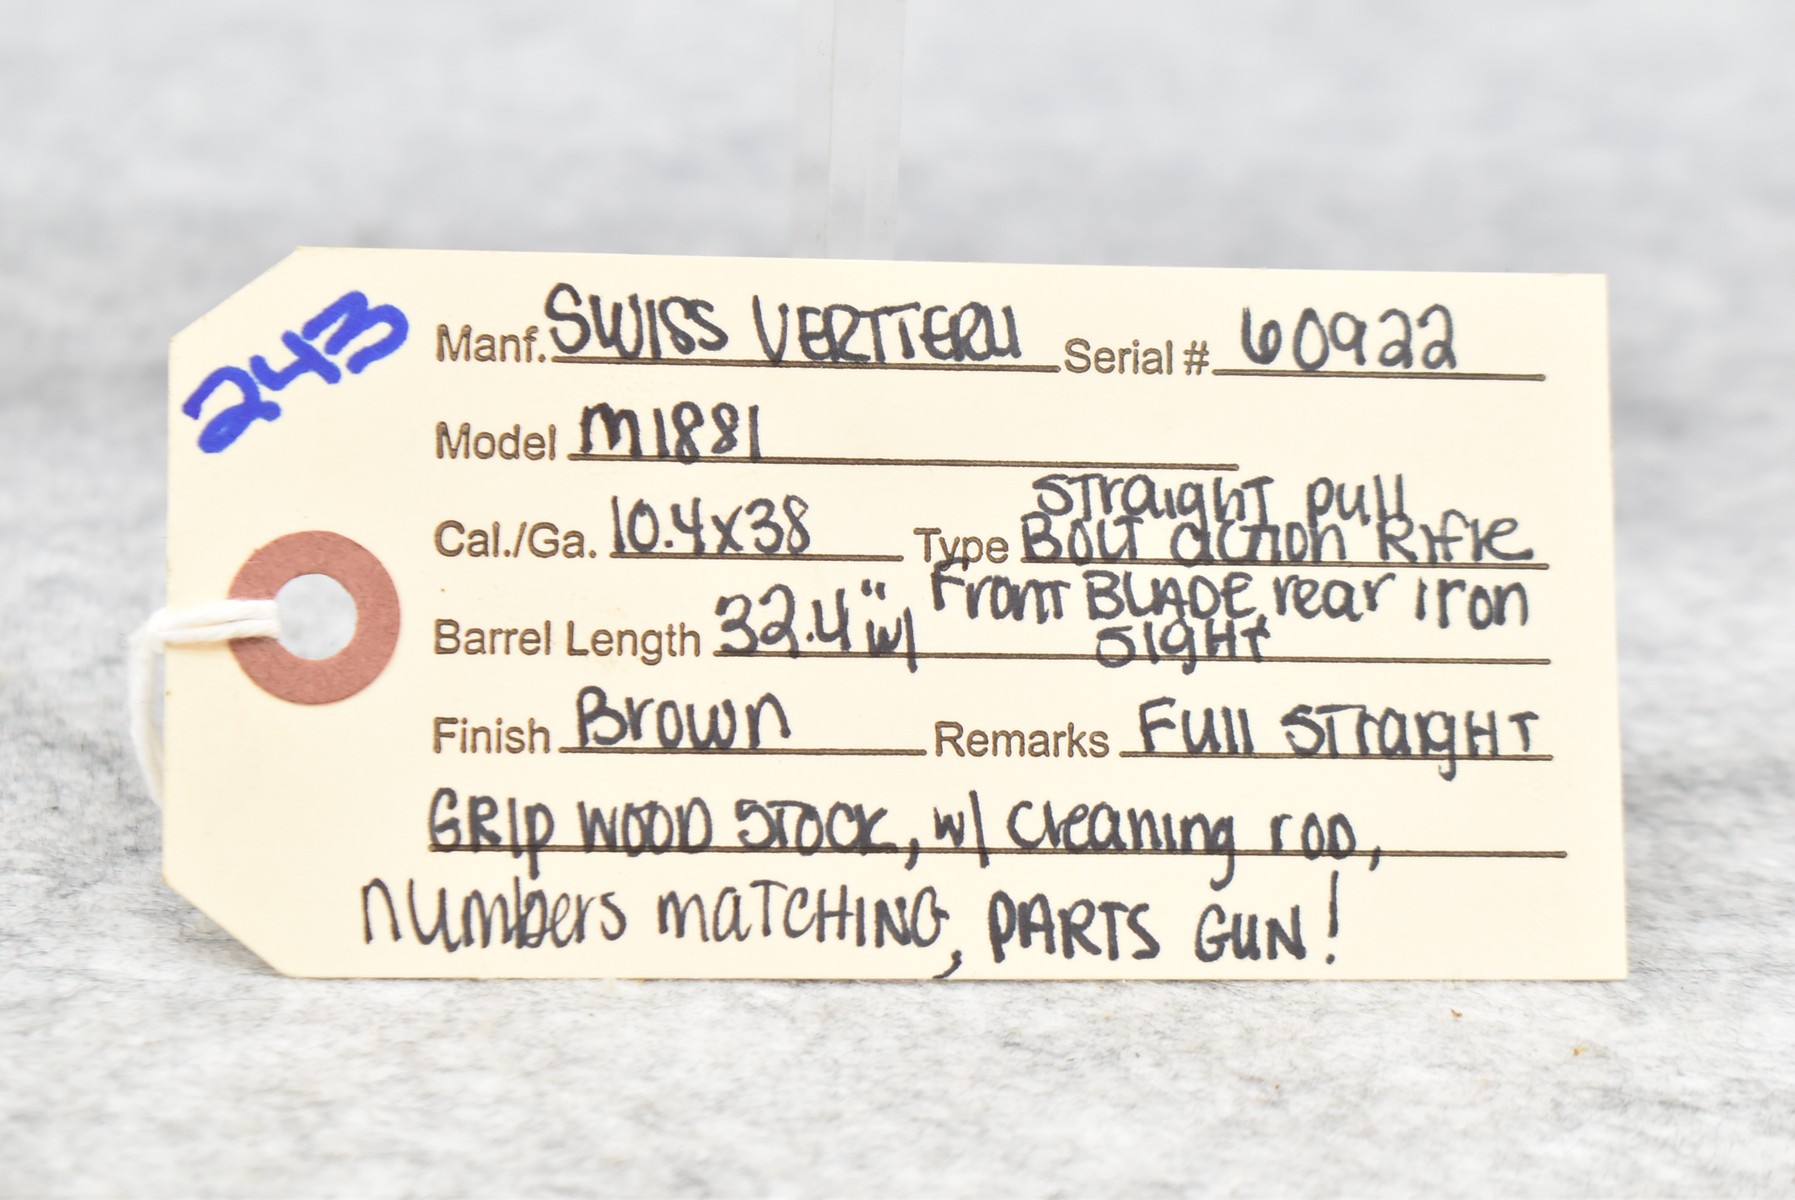 243
Manf. SWISS VERTTERU Serial # 60922
Model M1881
Cal./Ga. 10.4x38 Type Straight pull
Bolt action Rifle
Barrel Length 32.4" w/ Front BLADE, rear iron
sight
Finish Brown Remarks Full Straight
GRIP WOOD STOCK, w/ Cleaning rod,
numbers matching, PARTS GUN!